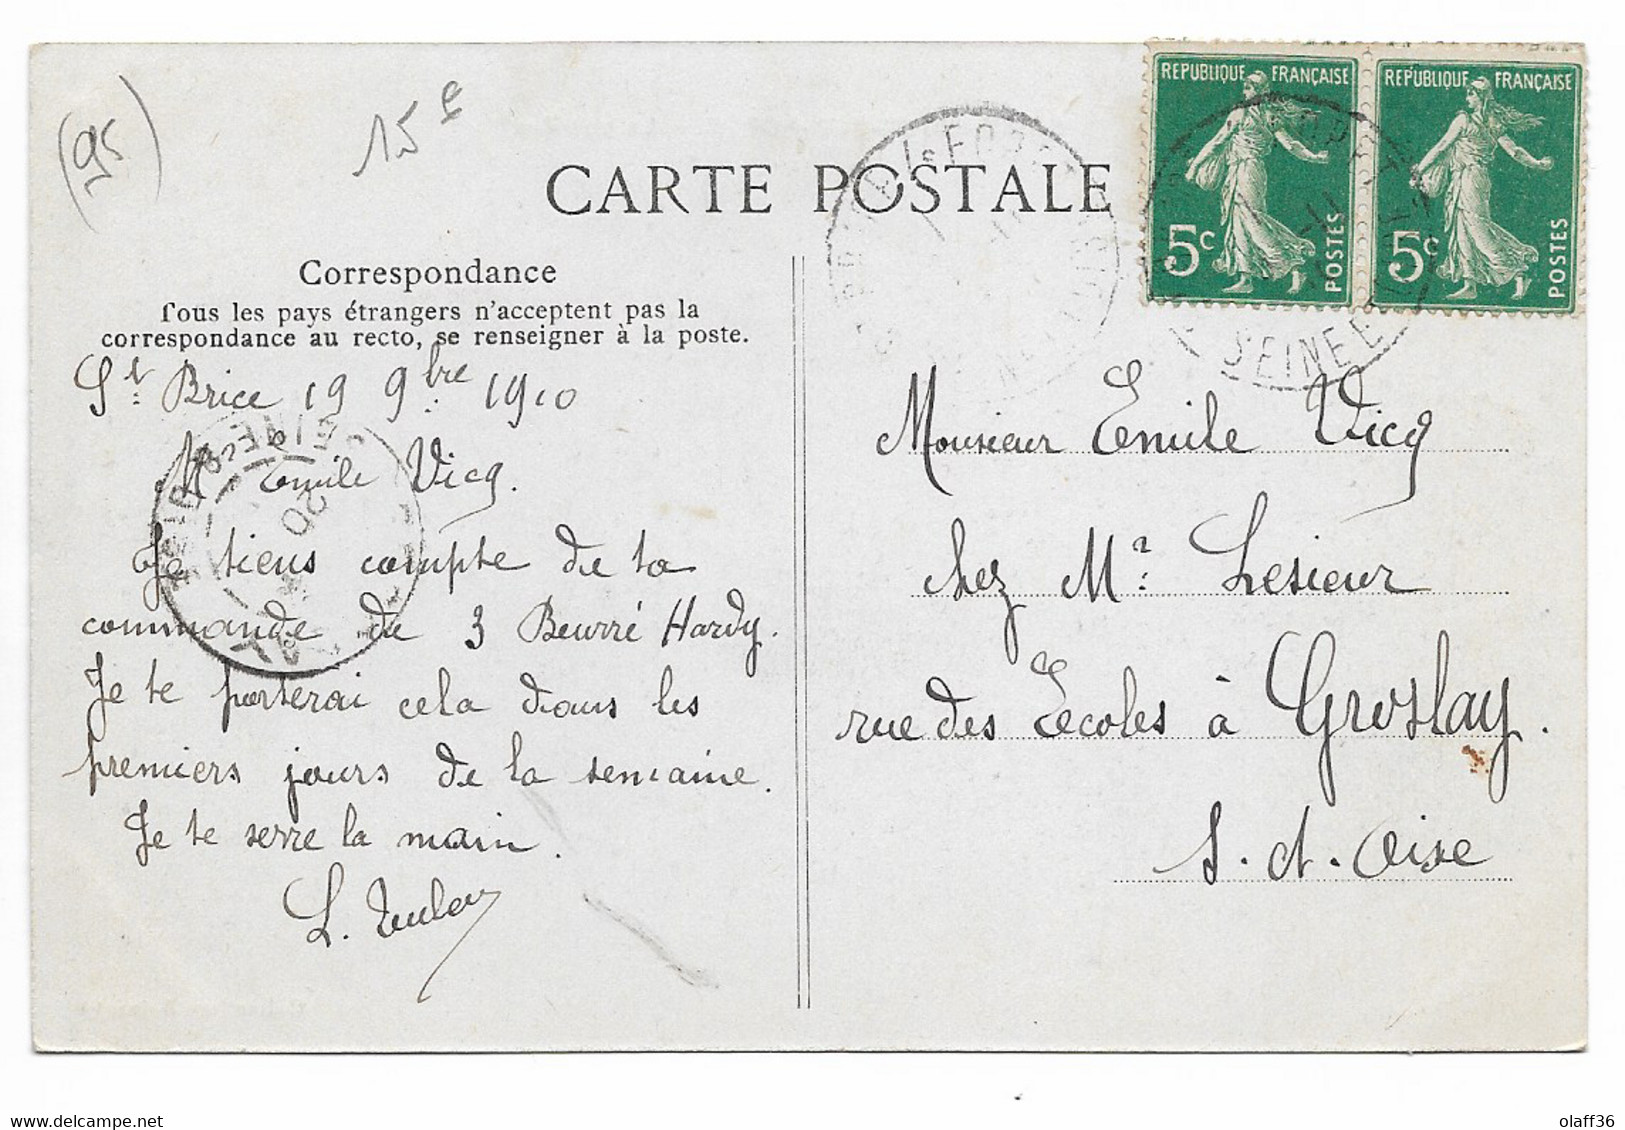 (95)
15 €
CARTE POSTALE
RÉPUBLIQUE FRANÇAISE
5c
POSTES
RÉPUBLIQUE FRANÇAISE
5c
POSTES
SEINE
Correspondance
Tous les pays étrangers n'acceptent pas la
correspondance au recto, se renseigner à la poste.
St. Brice 19 9bre 1910
Mr Emile Vicq.
Je tiens compte de ta
commande de 3 Beurré Hardy.
Je te porterai cela dans les
premiers jours de la semaine.
Je te serre la main.
20
Monsieur Emile Vicq
chez Mr: Lesieur
rue des Ecoles à Groslay.
S.et.Oise
delcampe.net
olaff36